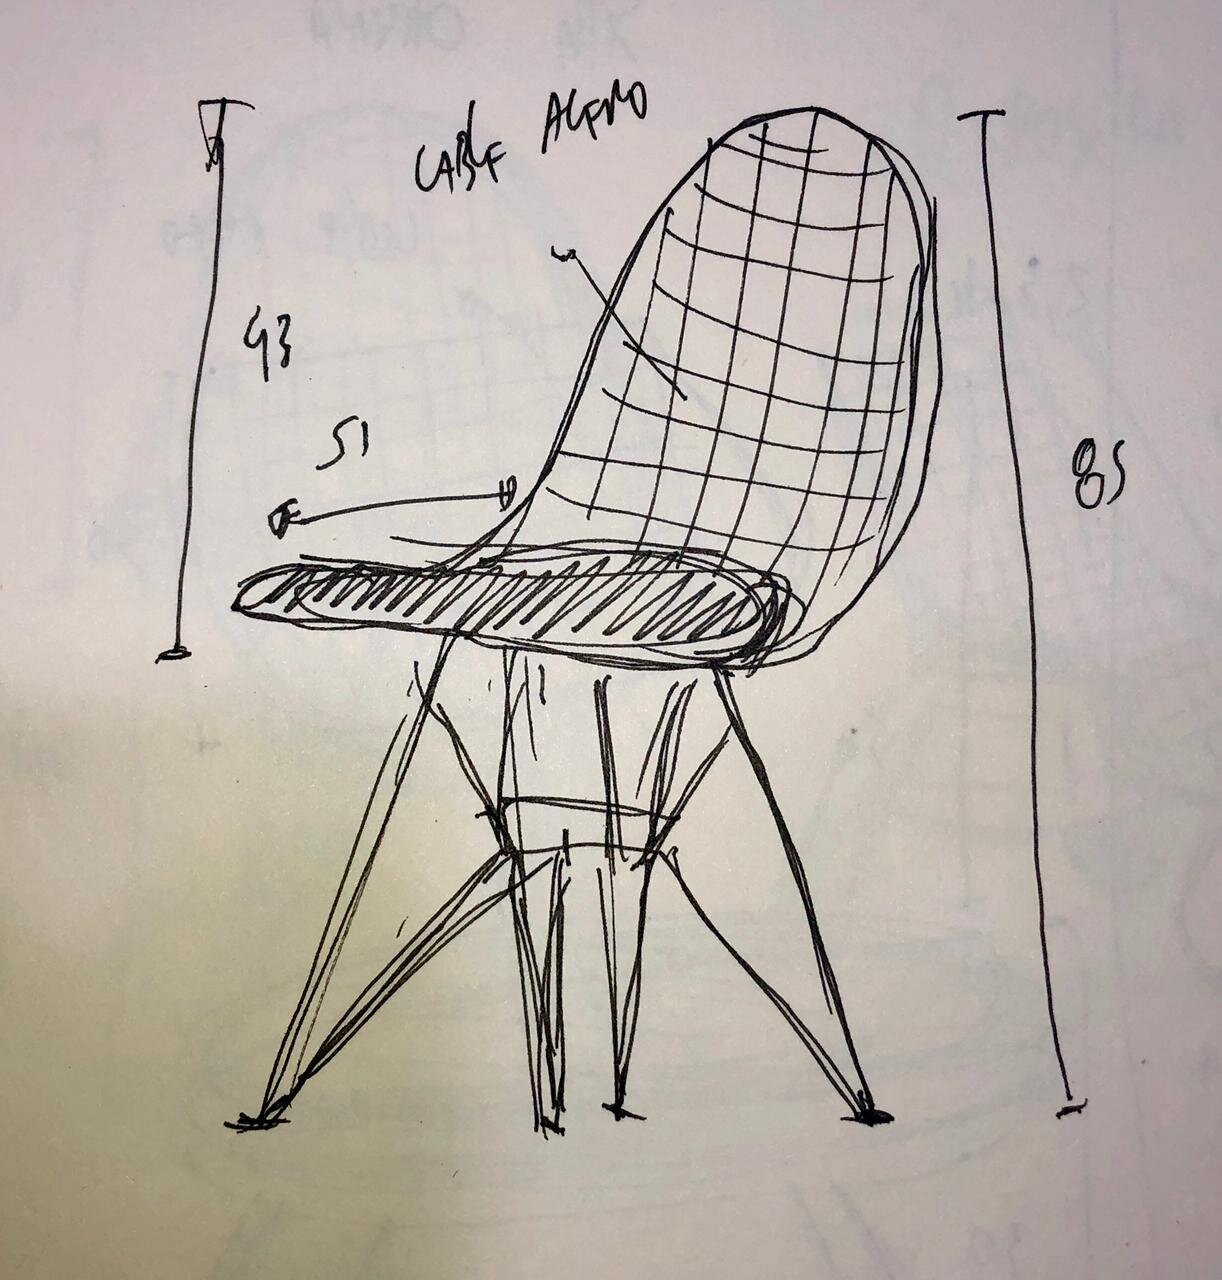 CABLE ACERO
43
51
85